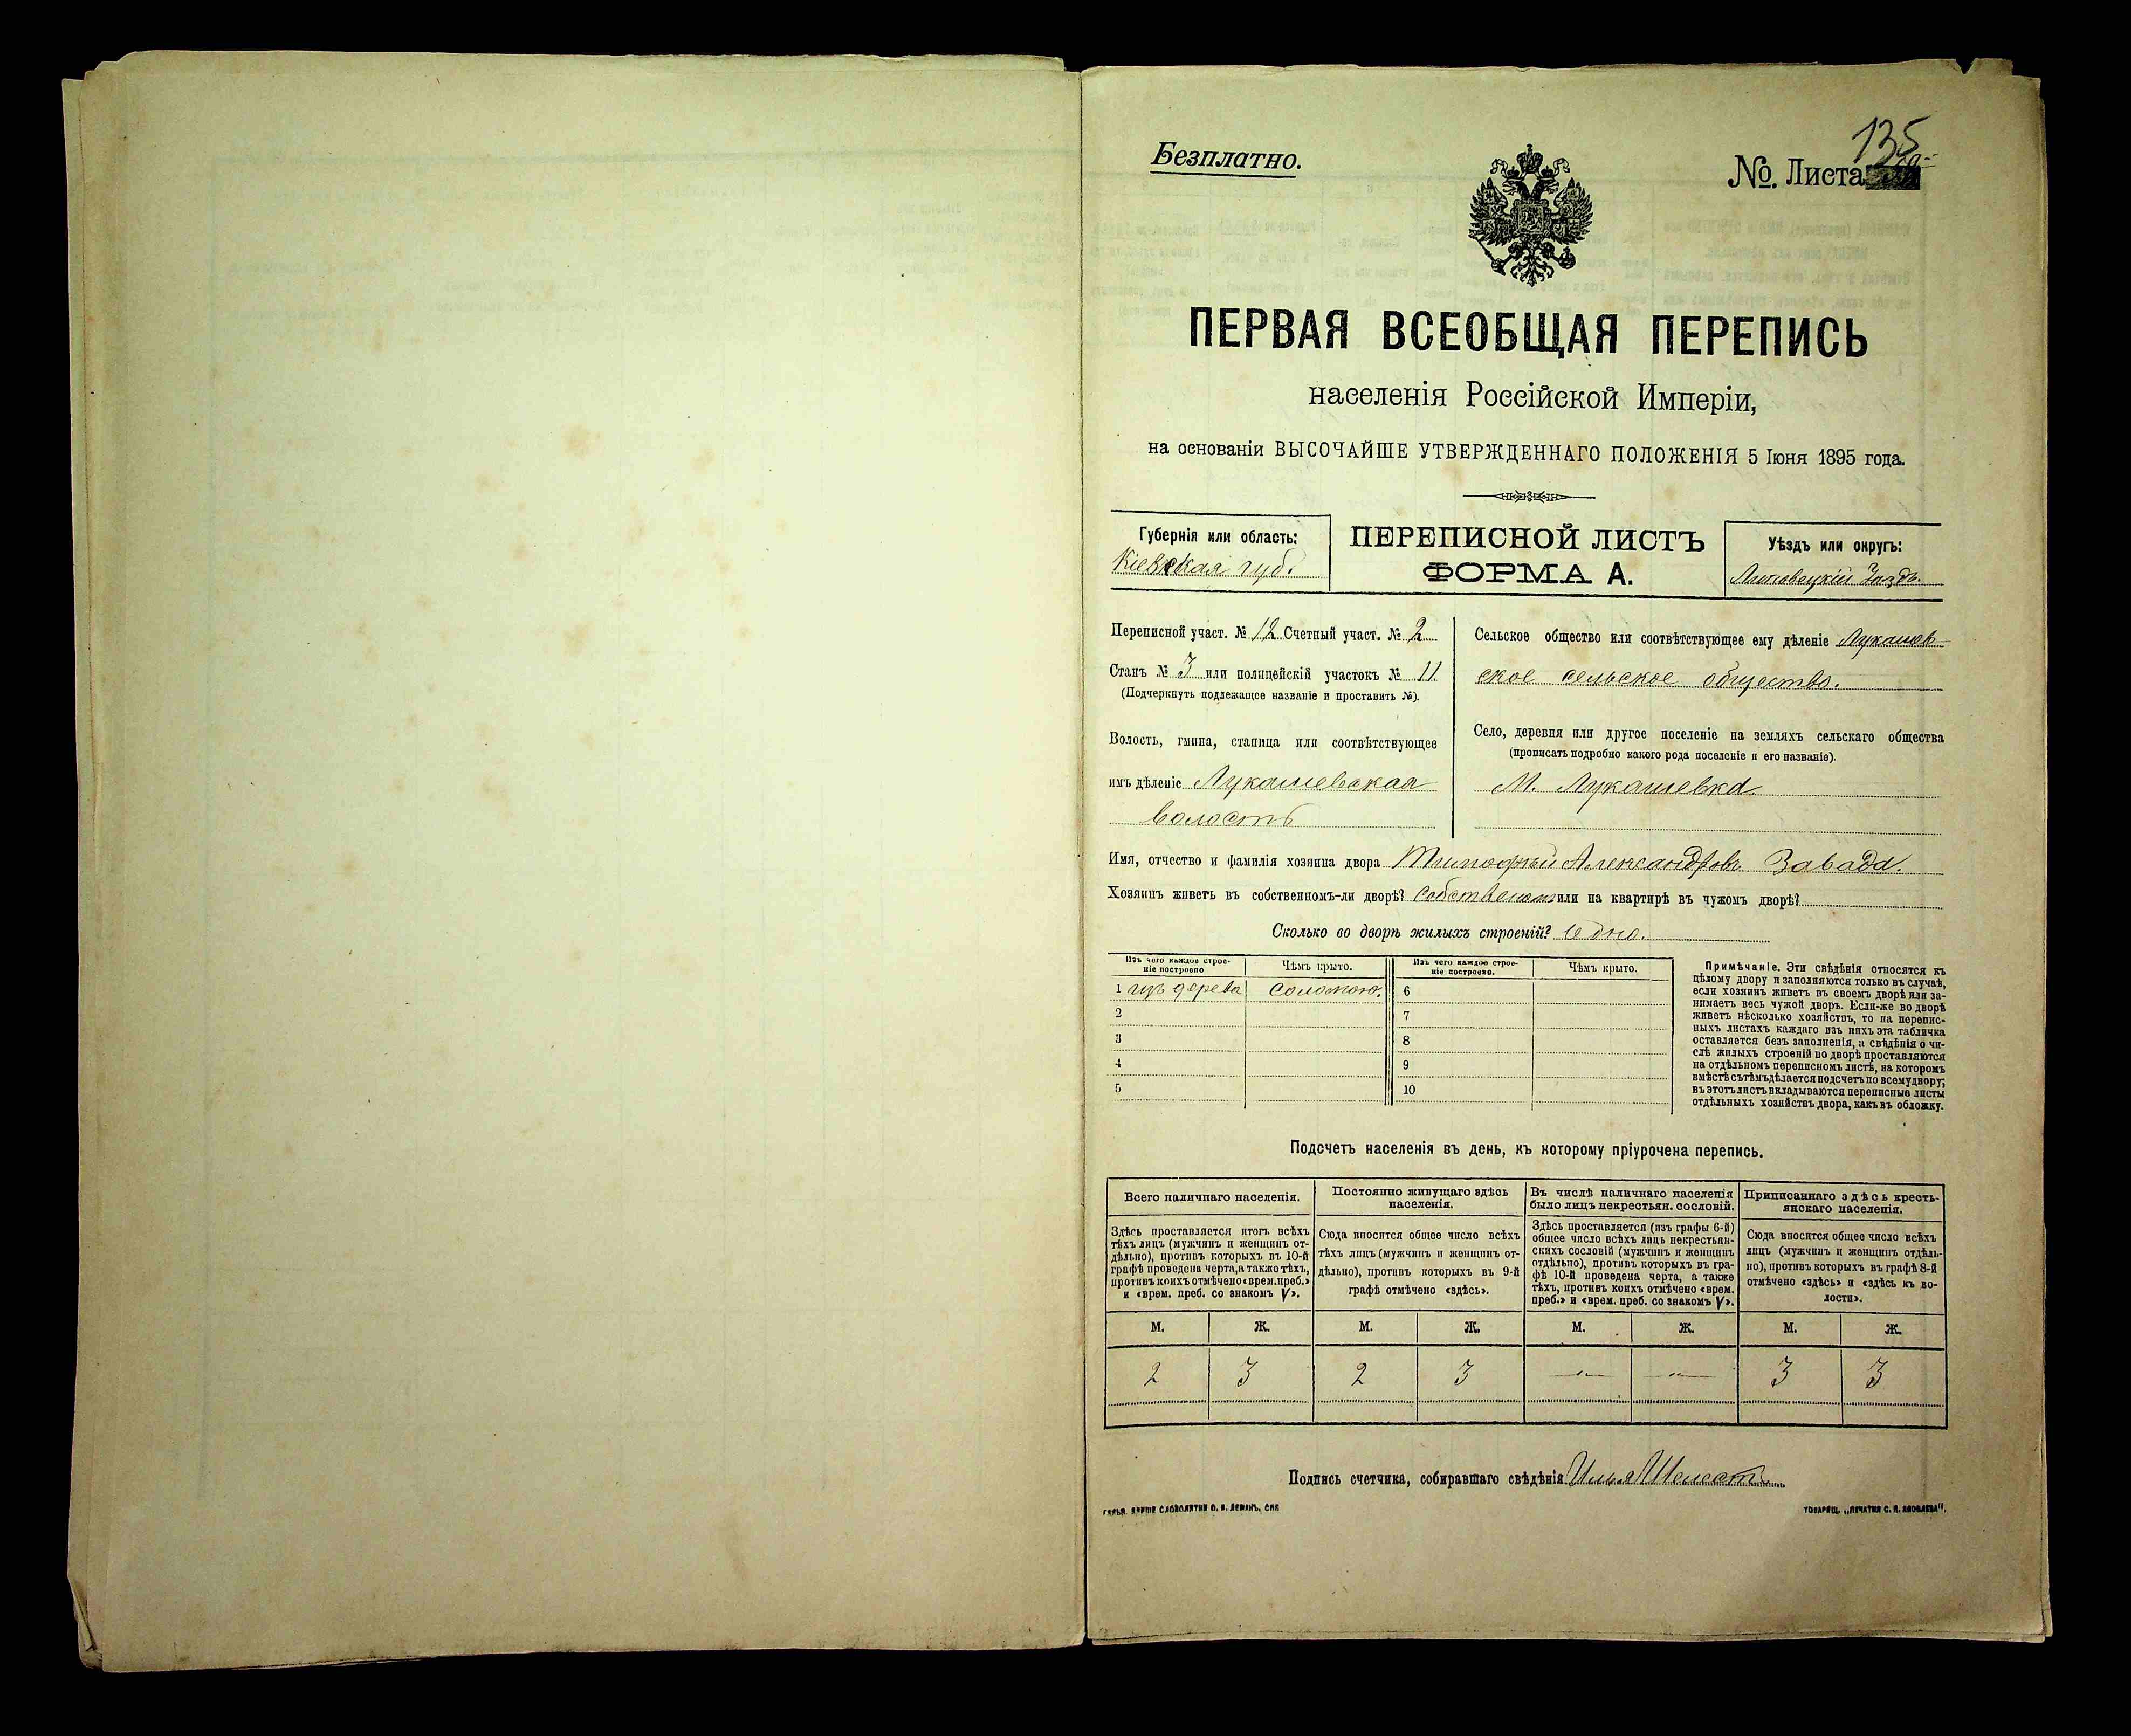 Безплатно.
№. Листа 135
ПЕРВАЯ ВСЕОБЩАЯ ПЕРЕПИСЬ
населенія Россійской Имперіи,
на основаніи ВЫСОЧАЙШЕ УТВЕРЖДЕННАГО ПОЛОЖЕНІЯ 5 Іюня 1895 года.
Губернія или область:
Кіевская губ.
ПЕРЕПИСНОЙ ЛИСТЪ
ФОРМА А.
Уѣздъ или округъ:
Липовецкій Уѣздъ.
Переписной участ. № 12 Счетный участ. № 2
Станъ № 3 или полицейскій участокъ № 11
(Подчеркнуть подлежащее названіе и проставить №).
Волость, гмина, станица или соотвѣтствующее
имъ дѣленіе Лукашевская
волость
Сельское общество или соотвѣтствующее ему дѣленіе Лукашев-
ское сельское общество.
Село, деревня или другое поселеніе на земляхъ сельскаго общества
(прописать подробно какого рода поселеніе и его названіе).
М. Лукашевка.
Имя, отчество и фамилія хозяина двора Тимофѣй Александровъ Завада.
Хозяинъ живетъ въ собственномъ-ли дворѣ? Собственномъ или на квартирѣ въ чужомъ дворѣ?
Сколько во дворѣ жилыхъ строеній? Одно.
Изъ чего каждое строе-
ніе построено
Чѣмъ крыто.
Изъ чего каждое строе-
ніе построено.
Чѣмъ крыто.
1 изъ дерева соломою. 6
2 7
3 8
4 9
5 10
Примѣчаніе. Эти свѣдѣнія относятся къ
цѣлому двору и заполняются только въ случаѣ,
если хозяинъ живетъ въ своемъ дворѣ или за-
нимаетъ весь чужой дворъ. Если-же во дворѣ
живетъ нѣсколько хозяйствъ, то на перепис-
ныхъ листахъ каждаго изъ нихъ эта табличка
оставляется безъ заполненія, а свѣдѣнія о чи-
слѣ жилыхъ строеній во дворѣ проставляются
на отдѣльномъ переписномъ листѣ, на которомъ
вмѣстѣ съ тѣмъ дѣлается подсчетъ по всему двору;
въ этотъ листъ вкладываются переписные листы
отдѣльныхъ хозяйствъ двора, какъ въ обложку.
Подсчетъ населенія въ день, къ которому пріурочена перепись.
Всего наличнаго населенія.
Здѣсь проставляется итогъ всѣхъ
тѣхъ лицъ (мужчинъ и женщинъ от-
дѣльно), противъ которыхъ въ 10-й
графѣ проведена черта, а также тѣхъ,
противъ коихъ отмѣчено «врем. преб.»
и «врем. преб. со знакомъ V».
Постоянно живущаго здѣсь
населенія.
Сюда вносится общее число всѣхъ
тѣхъ лицъ (мужчинъ и женщинъ от-
дѣльно), противъ которыхъ въ 9-й
графѣ отмѣчено «здѣсь».
Въ числѣ наличнаго населенія
было лицъ некрестьян. сословій.
Здѣсь проставляется (изъ графы 6-й)
общее число всѣхъ лицъ некрестьян-
скихъ сословій (мужчинъ и женщинъ
отдѣльно), противъ которыхъ въ гра-
фѣ 10-й проведена черта, а также
тѣхъ, противъ коихъ отмѣчено «врем.
преб.» и «врем. преб. со знакомъ V».
Приписаннаго здѣсь кресть-
янскаго населенія.
Сюда вносится общее число всѣхъ
лицъ (мужчинъ и женщинъ отдѣль-
но), противъ которыхъ въ графѣ 8-й
отмѣчено «здѣсь» и «здѣсь къ во-
лости».
М. Ж. М. Ж. М. Ж. М. Ж.
2 3 2 3 —"— —"— 3 3
Подпись счетчика, собиравшаго свѣдѣнія Илья Шелестъ
СЛОВОЛИТНИ О. И. ЛЕМАНЪ, СПБ
ТОВАРИЩ. „ПЕЧАТНЯ С. П. ЯКОВЛЕВА".